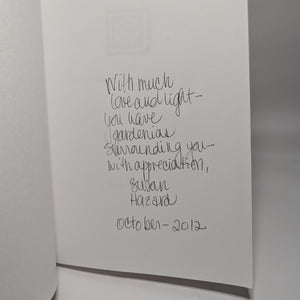 With much
love and light –
you have
gardenias
surrounding you –
with appreciation,
Susan
Hazard
October – 2012